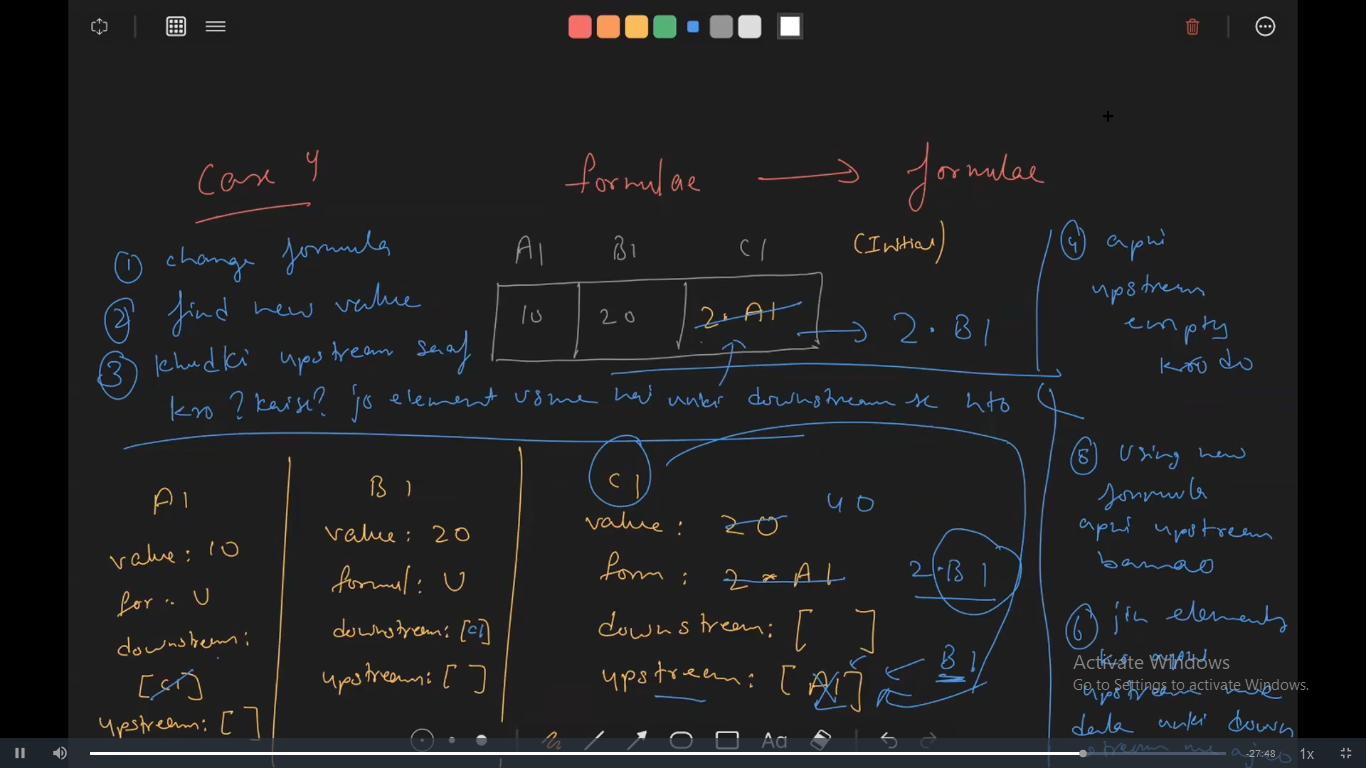 Case 4
formulae → formulae
① change formula
② find new value
③ khudki upstream saaf
kro ? kaise? jo element usme hai unki downstream se hto
A1 B1 C1 (Initial)
10 20 2 * A1 → 2 * B1
④ apni
upstream
empty
kro do
⑤ Using new
formula
apni upstream
banao
⑥ jin elements
ko apni
upstream me
dala unki down
stream me
A1
value: 10
for: U
downstream:
[C1]
upstream: [ ]
B1
value: 20
formul: U
downstream: [C1]
upstream: [ ]
C1
value: 20 40
form: 2 * A1 2 * B1
downstream: [ ]
upstream: [A1] ← B1
Activate Windows
Go to Settings to activate Windows.
Aa
-27:48
1x